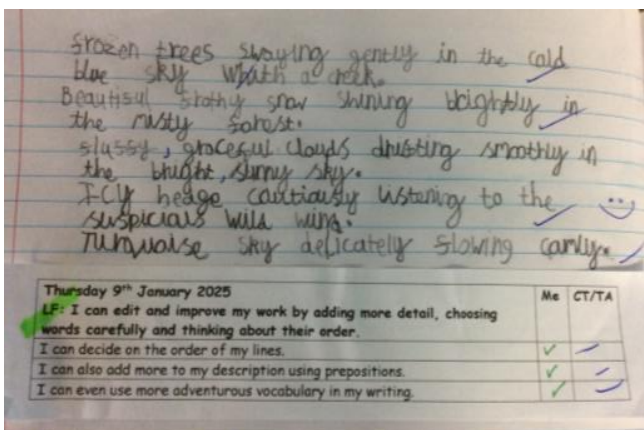 Frozen trees swaying gently in the cold
blue sky with a creek.
Beautiful frothy snow shining brightly in
the misty forest.
fluffy, graceful clouds drifting smoothly in
the bright, sunny sky.
ICY hedge cautiously listening to the
suspicious wild wind.
Turquoise sky delicately flowing
Thursday 9th January 2025
Me CT/TA
LF: I can edit and improve my work by adding more detail, choosing
words carefully and thinking about their order.
I can decide on the order of my lines.
I can also add more to my description using prepositions.
I can even use more adventurous vocabulary in my writing.